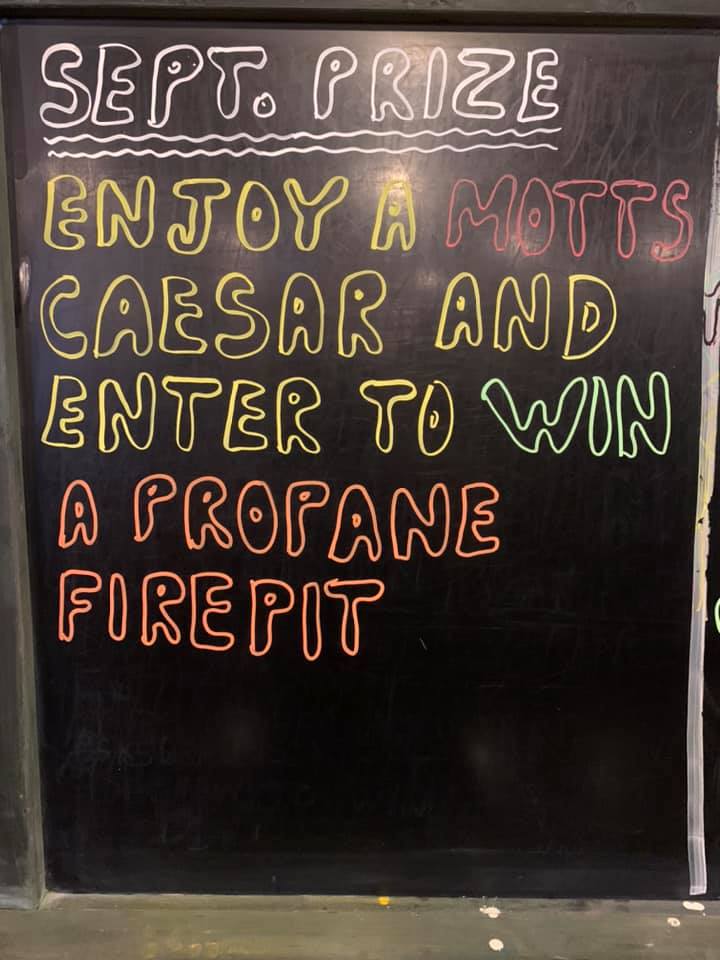 SEPT. PRIZE
ENJOY A MOTTS
CAESAR AND
ENTER TO WIN
A PROPANE
FIREPIT